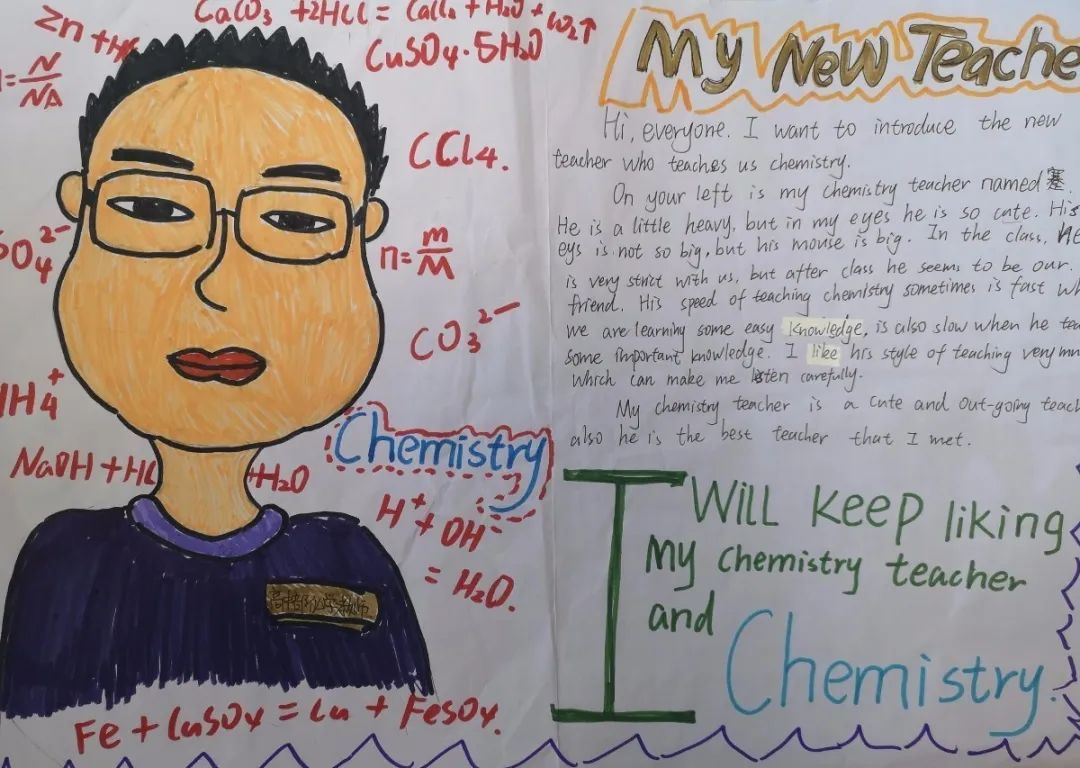 Zn +
CaCO₃ +2HCl = CaCl₂ + H₂O + CO₂↑
CuSO₄·5H₂O
= N/NA
CCl₄.
SO₄²⁻
n = m/M
CO₃²⁻
NH₄⁺
Chemistry
NaOH + HCl
+H₂O
H⁺ + OH⁻
= H₂O.
Fe + CuSO₄ = Cu + FeSO₄.
My New Teache
Hi, everyone. I want to introduce the new
teacher who teaches us chemistry.
On your left is my chemistry teacher named 塞.
He is a little heavy, but in my eyes he is so cute. His
eys is not so big, but his mouse is big. In the class, He
is very strict with us, but after class he seems to be our.
friend. His speed of teaching chemistry sometimes is fast wh
we are learning some easy knowledge, is also slow when he tea
some important knowledge. I like his style of teaching very mu
which can make me listen carefully.
My chemistry teacher is a cute and out-going teac
also he is the best teacher that I met.
I Will keep liking
My chemistry teacher
and
Chemistry.